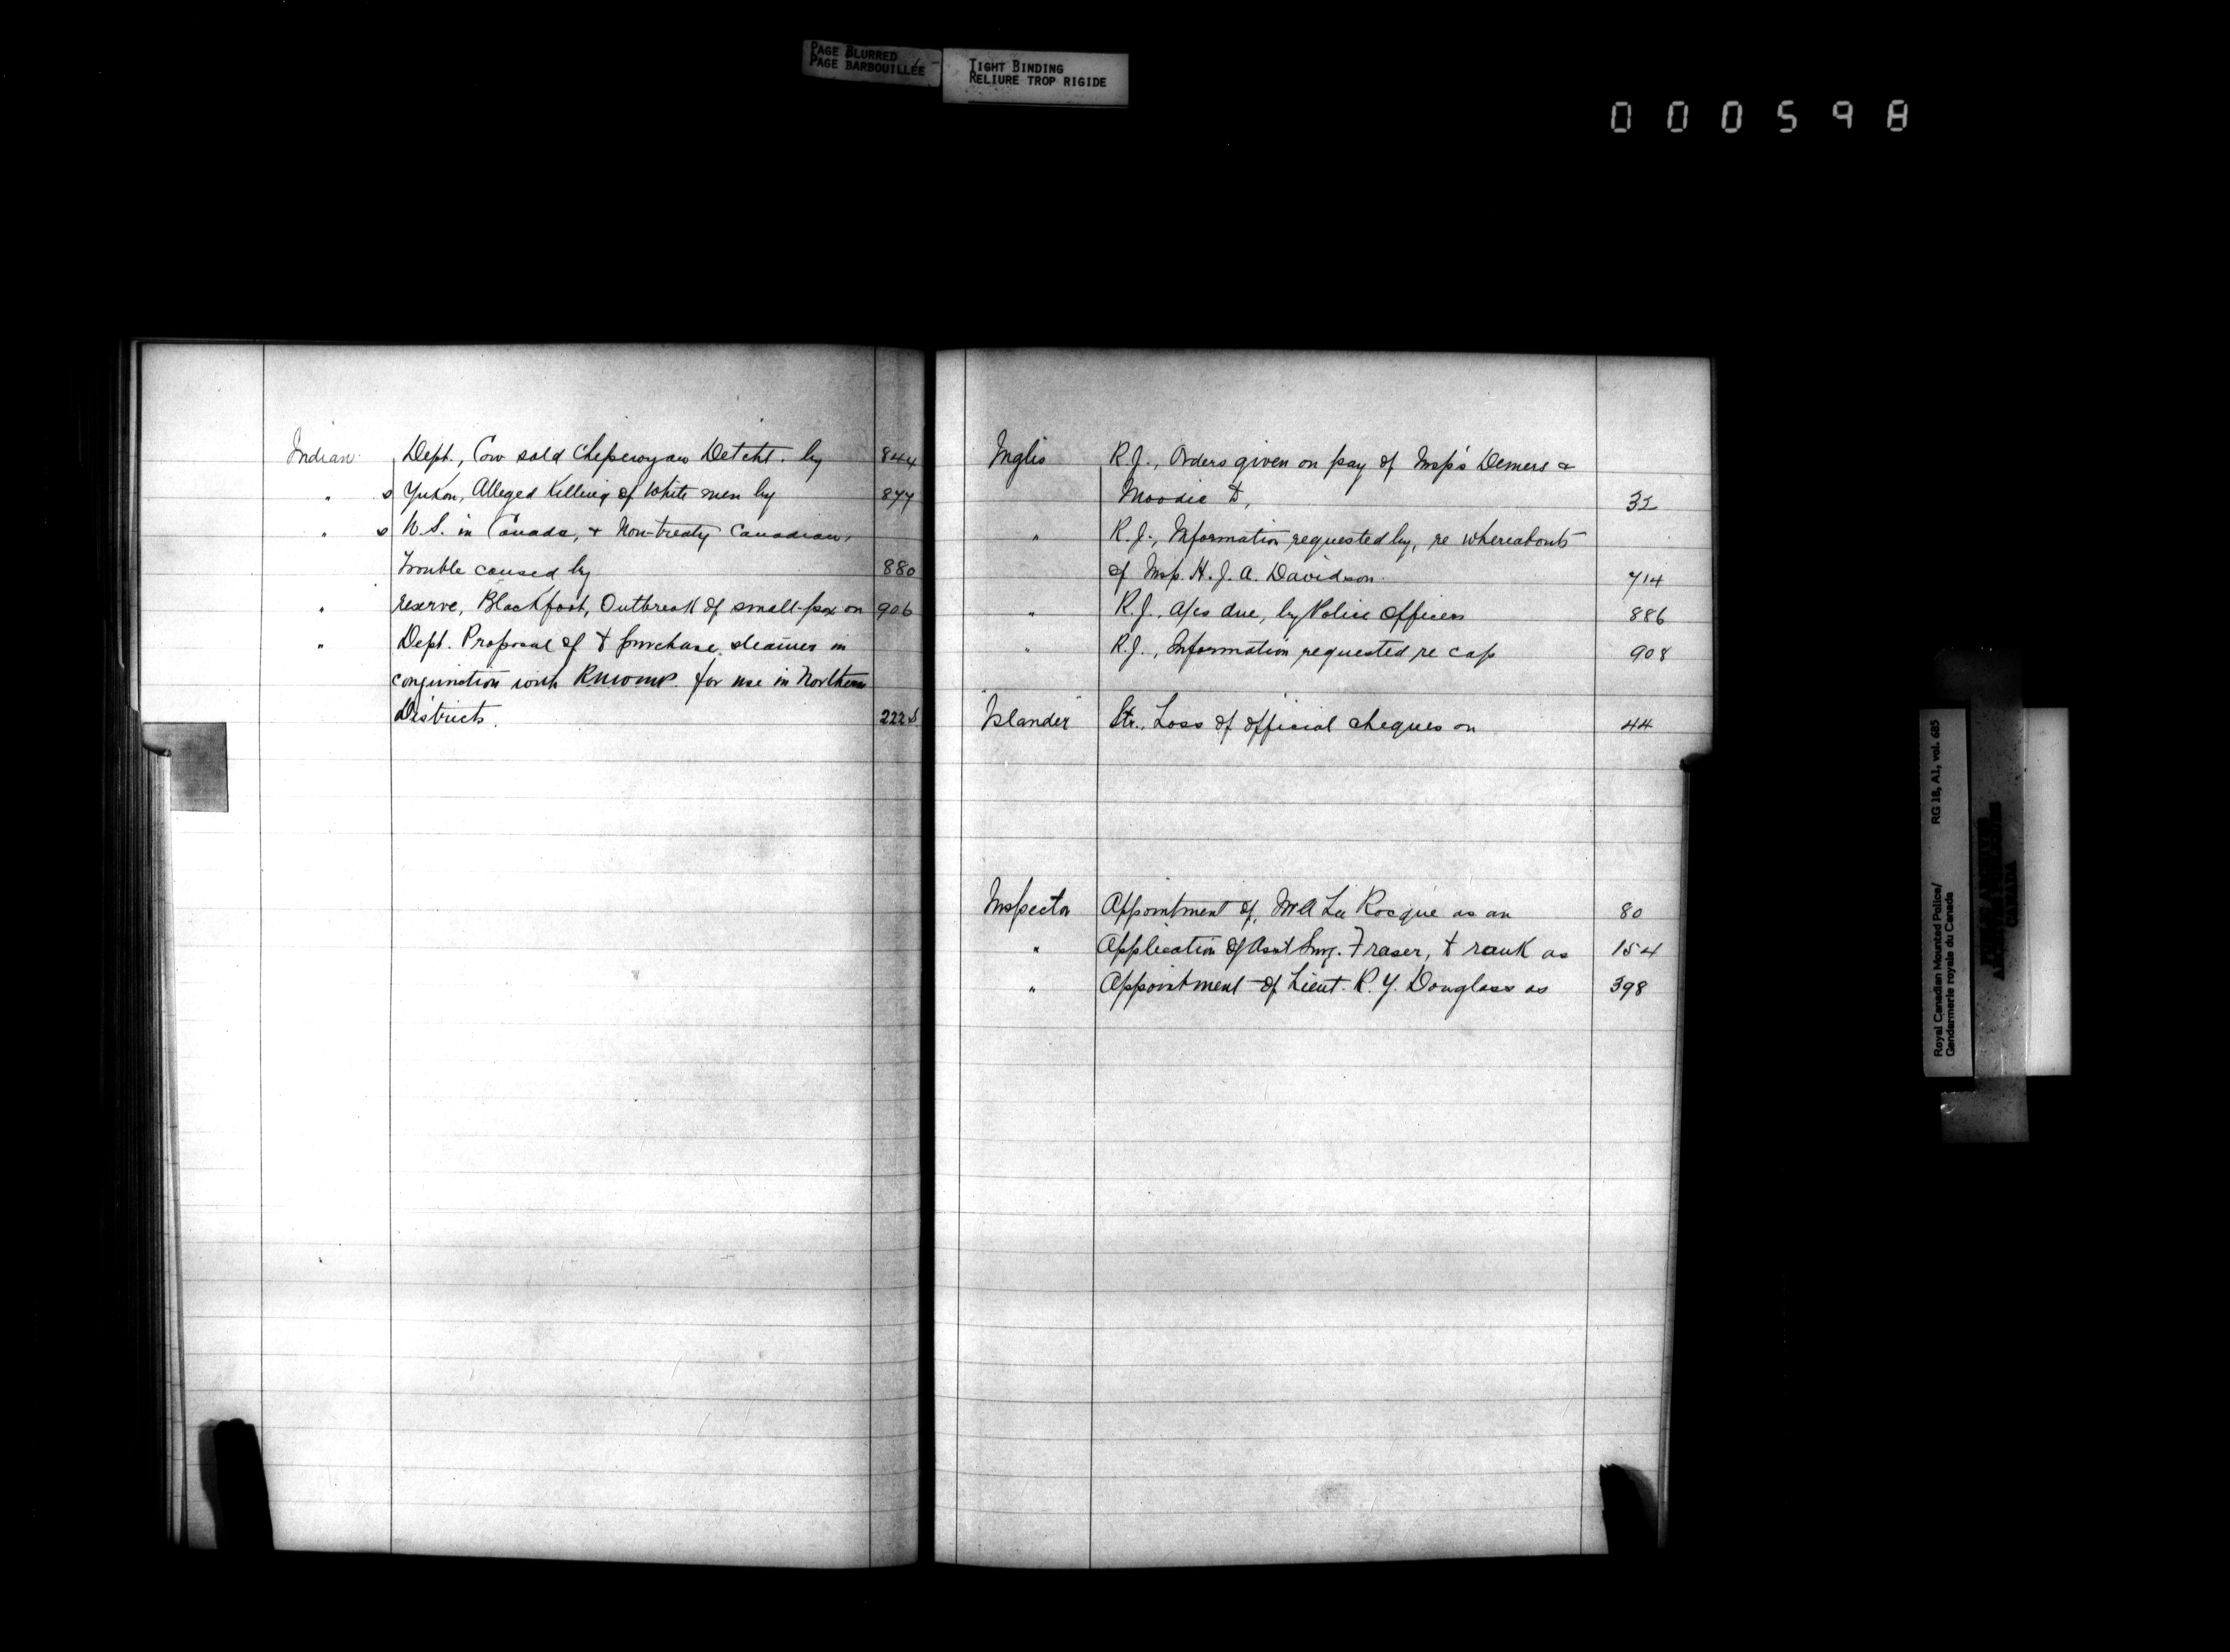 PAGE BLURRED
PAGE BARBOUILLÉE
TIGHT BINDING
RELIURE TROP RIGIDE
000598
Indian Dept., Cow sold Chipewyan Detcht. by 844
" s Yukon, Alleged Killing of White men by 877
" s U.S. in Canada, & Non-treaty Canadian,
Trouble caused by 880
" reserve, Blackfoot, Outbreak of small-pox on 906
" Dept. Proposal of to purchase steamer in
conjunction with RNWMP. for use in Northern
Districts. 222
Inglis R.J., Orders given on pay of Insp's Demers &
Moodie to, 32
" R.J., Information requested by, re whereabouts
of Insp. H.J.A. Davidson. 714
" R.J., a/cs due, by Police Officers 886
" R.J., Information requested re cap 908
"Islander" Str., Loss of official cheques on 44
Inspector Appointment of, Mr A La Rocque as an 80
" Application of Asst Surg. Fraser, to rank as 154
" Appointment of Lieut. R.Y. Douglass as 398
Royal Canadian Mounted Police/
Gendarmerie royale du Canada
RG 18, A1, vol. 685
CANADA